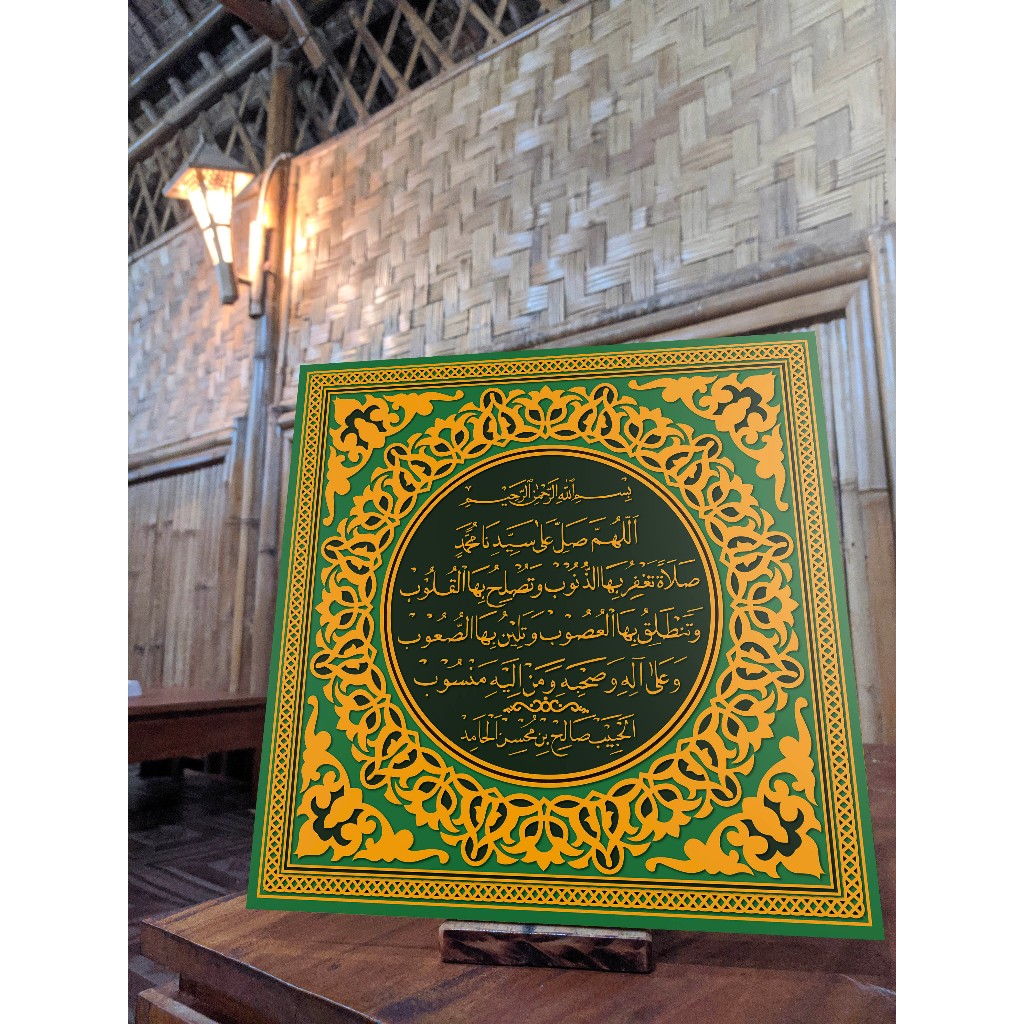 بِسْمِ اللهِ الرَّحْمٰنِ الرَّحِيْمِ
اَللّٰهُمَّ صَلِّ عَلٰى سَيِّدِنَا مُحَمَّدٍ
صَلَاةً تَغْفِرُ بِهَا الذُّنُوْبَ وَتُصْلِحُ بِهَا الْقُلُوْبَ
وَتَنْطَلِقُ بِهَا الْعُصُوْبُ وَتَلِيْنُ بِهَا الصُّعُوْبُ
وَعَلٰى آلِهِ وَصَحْبِهِ وَمَنْ اِلَيْهِ مَنْسُوْبٌ
الْحَبِيْب صَالِح بِنْ مُحْسِنْ الْحَامِدْ